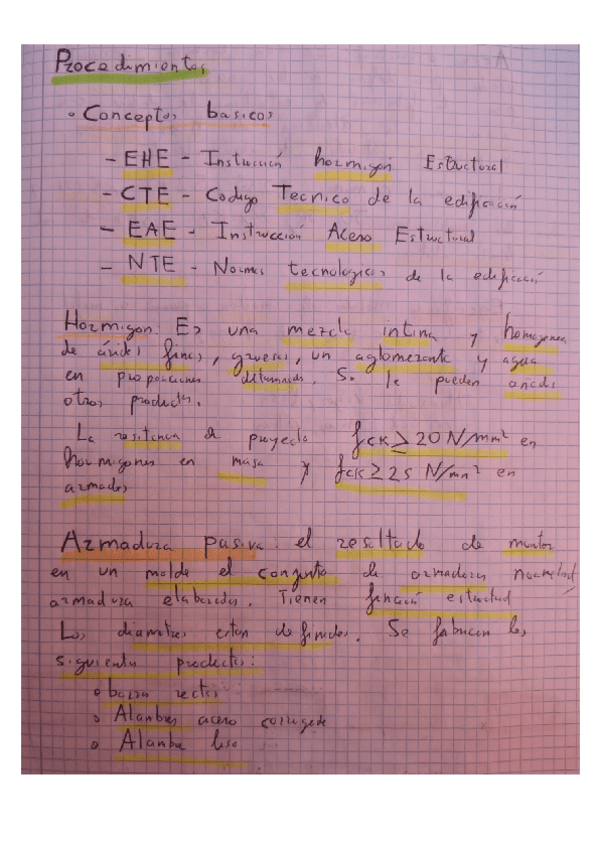 Procedimientos
Conceptos basicos
- EHE - Instrucción hormigón Estructural
- CTE - Codigo Tecnico de la edificación
- EAE - Instrucción Acero Estructural
- NTE - Normas tecnologicas de la edificación
Hormigon. Es una mezcla intima y homogenea
de áridos finos, gruesos, un aglomerante y agua
en proporciones determinadas. Se le pueden añadir
otros productos.
La resistencia de proyecto fck ≥ 20 N/mm² en
hormigones en masa y fck ≥ 25 N/mm² en
armados
Armadura pasiva: el resultado de montar
en un molde el conjunto de armaduras
armadura elaboradas. Tienen función estructural
Los diametros estan definidos. Se fabrican los
siguientes productos:
barra rectas
Alambres acero corrugado
Alambre liso